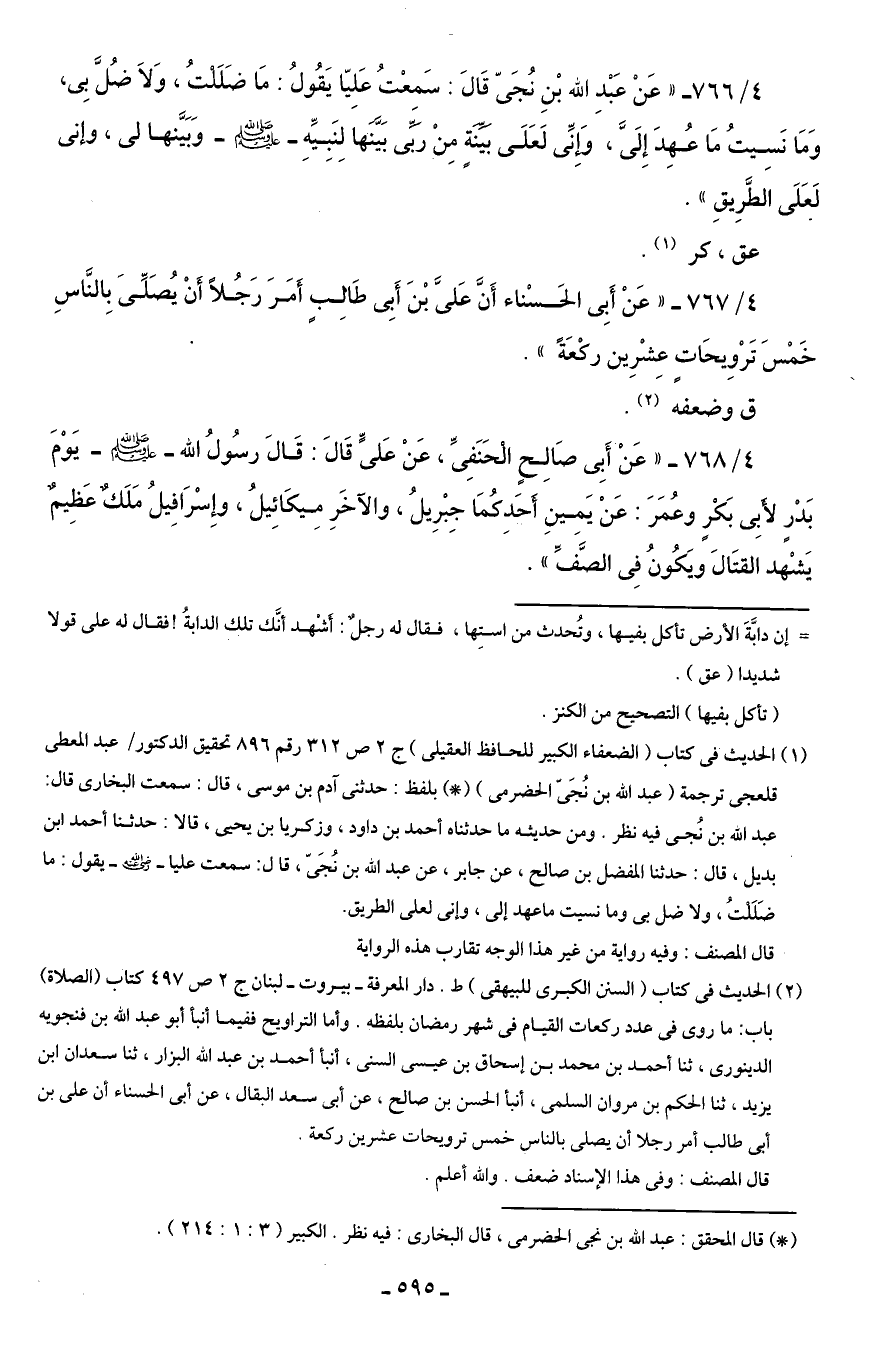 ٤/ ٧٦٦ـ « عَنْ عَبْدِ الله بْنِ نُجَىّ قَالَ : سَمِعْتُ عَليّا يَقُولُ : مَا ضَلَلْتُ ، وَلاَ ضُلَّ بى،
وَمَا نَسِيتُ مَا عُهِدَ إِلَىَّ ، وَإِنِّى لَعَلَى بَيِّنَةٍ مِنْ رَبِّى بَيَّنَها لِنَبِيِّهِ ـ ﷺ ـ وَبَيَّنهَا لى ، وإنى
لَعَلَى الطَّرِيقِ » .
عق ، كر (١) .
٤/ ٧٦٧ـ « عَنْ أَبى الحَسْناء أَنَّ عَلىَّ بْنَ أَبى طَالِبٍ أَمَرَ رَجُلاً أَنْ يُصَلِّىَ بِالنَّاسِ
خَمْسَ تَرْوِيحَاتٍ عِشْرِين ركْعَةً » .
ق وضعفه (٢) .
٤/ ٧٦٨ـ « عَنْ أَبِى صَالِحٍ الْحَنَفِىِّ ، عَنْ عَلىٍّ قَالَ : قَالَ رسُولُ الله ـ ﷺ ـ يَوْمَ
بَدْرٍ لأَبِى بَكْرٍ وعُمَرَ : عَنْ يَمِينِ أَحَدِكُمَا جِبْرِيلُ ، والآخَرِ مِيكَائِيلُ ، وإِسْرَافِيلُ مَلَكٌ عَظِيمٌ
يَشْهد القتَالَ ويَكُونُ فِى الصَّفِّ » .
= إن دابَّةَ الأرض تأكل بفيها ، وتُحدث من استها ، فقال له رجلٌ : أشْهد أنَّك تلك الدابةُ !فقال له على قولا
شديدا ( عق ) .
( تأكل بفيها ) التصحيح من الكنز .
(١) الحديث فى كتاب ( الضعفاء الكبير للحافظ العقيلى ) ج ٢ ص ٣١٢ رقم ٨٩٦ تحقيق الدكتور/ عبد المعطى
قلعجى ترجمة ( عبد الله بن نُجَىّ الحضرمى ) (*) بلفظ : حدثنى آدم بن موسى ، قال : سمعت البخارى قال:
عبد الله بن نُجى فيه نظر . ومن حديثه ما حدثناه أحمد بن داود ، وزكريا بن يحيى ، قالا : حدثنا أحمد ابن
بديل ، قال : حدثنا المفضل بن صالح ، عن جابر ، عن عبد الله بن نُجَىّ ، قا ل: سمعت عليا ـ رضي الله عنه ـ يقول : ما
ضَلَلْتُ ، ولا ضل بى وما نسيت ماعهد إلى ، وإنى لعلى الطريق.
قال المصنف : وفيه رواية من غير هذا الوجه تقارب هذه الرواية
(٢) الحديث فى كتاب ( السنن الكبرى للبيهقى ) ط . دار المعرفة ـ بيروت ـ لبنان ج ٢ ص ٤٩٧ كتاب (الصلاة)
باب: ما روى فى عدد ركعات القيام فى شهر رمضان بلفظه . وأما التراويح ففيما أنبأ أبو عبد الله بن فنجويه
الدينورى ، ثنا أحمد بن محمد بن إسحاق بن عيسى السنى ، أنبأ أحمد بن عبد الله البزار ، ثنا سعدان ابن
يزيد ، ثنا الحكم بن مروان السلمى ، أنبأ الحسن بن صالح ، عن أبى سعد البقال ، عن أبى الحسناء أن على بن
أبى طالب أمر رجلا أن يصلى بالناس خمس ترويحات عشرين ركعة .
قال المصنف : وفى هذا الإسناد ضعف . والله أعلم .
(*) قال المحقق : عبد الله بن نجى الحضرمى ، قال البخارى : فيه نظر . الكبير ( ٣ : ١ : ٢١٤ ) .
ـ ٥٩٥ ـ